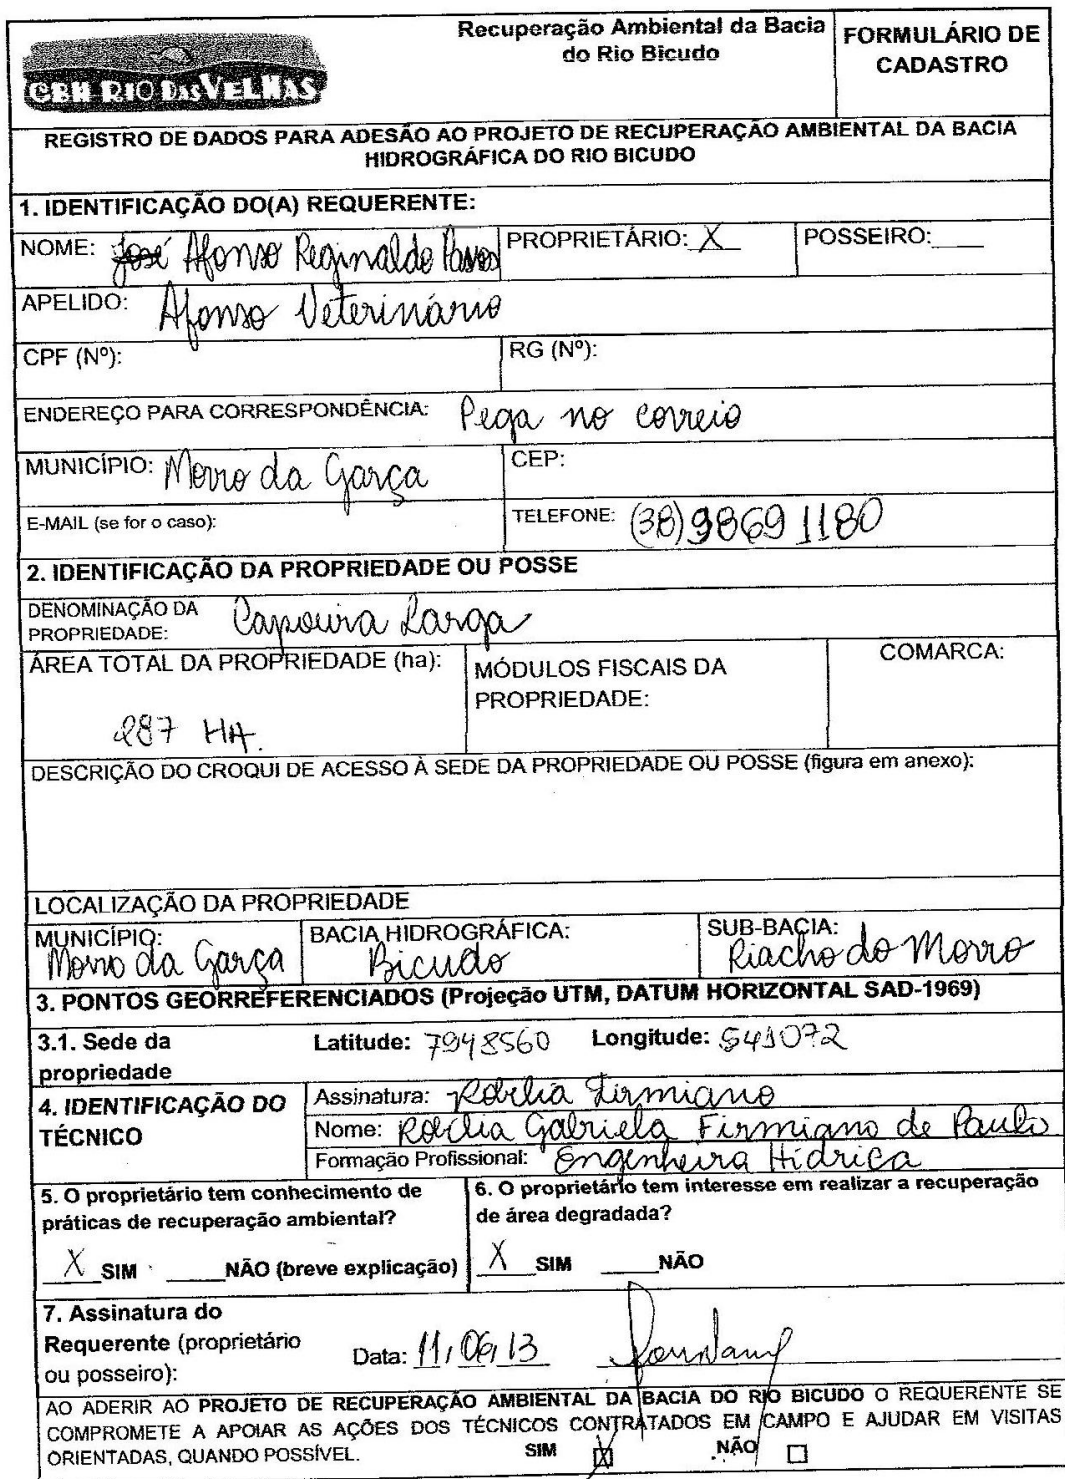 CBH RIO DAS VELHAS
Recuperação Ambiental da Bacia
do Rio Bicudo
FORMULÁRIO DE
CADASTRO
REGISTRO DE DADOS PARA ADESÃO AO PROJETO DE RECUPERAÇÃO AMBIENTAL DA BACIA
HIDROGRÁFICA DO RIO BICUDO
1. IDENTIFICAÇÃO DO(A) REQUERENTE:
NOME: José Afonso Reginaldo PROPRIETÁRIO: X POSSEIRO:___
APELIDO: Afonso Veterinário
CPF (Nº): RG (Nº):
ENDEREÇO PARA CORRESPONDÊNCIA: Pega no correio
MUNICÍPIO: Morro da Garça CEP:
E-MAIL (se for o caso): TELEFONE: (38) 98691180
2. IDENTIFICAÇÃO DA PROPRIEDADE OU POSSE
DENOMINAÇÃO DA
PROPRIEDADE: Capoeira Larga
ÁREA TOTAL DA PROPRIEDADE (ha): MÓDULOS FISCAIS DA
PROPRIEDADE: COMARCA:
287 HA.
DESCRIÇÃO DO CROQUI DE ACESSO À SEDE DA PROPRIEDADE OU POSSE (figura em anexo):
LOCALIZAÇÃO DA PROPRIEDADE
MUNICÍPIO: BACIA HIDROGRÁFICA: SUB-BACIA:
Morro da Garça Bicudo Riacho do Morro
3. PONTOS GEORREFERENCIADOS (Projeção UTM, DATUM HORIZONTAL SAD-1969)
3.1. Sede da
propriedade Latitude: 7948560 Longitude: 541072
4. IDENTIFICAÇÃO DO
TÉCNICO
Assinatura: Robélia Firmiano
Nome: Robélia Gabriela Firmiano de Paula
Formação Profissional: Engenheira Hídrica
5. O proprietário tem conhecimento de
práticas de recuperação ambiental?
X SIM ____NÃO (breve explicação)
6. O proprietário tem interesse em realizar a recuperação
de área degradada?
X SIM ____NÃO
7. Assinatura do
Requerente (proprietário
ou posseiro): Data: 11/06/13
AO ADERIR AO PROJETO DE RECUPERAÇÃO AMBIENTAL DA BACIA DO RIO BICUDO O REQUERENTE SE
COMPROMETE A APOIAR AS AÇÕES DOS TÉCNICOS CONTRATADOS EM CAMPO E AJUDAR EM VISITAS
ORIENTADAS, QUANDO POSSÍVEL. SIM ☒ NÃO ☐